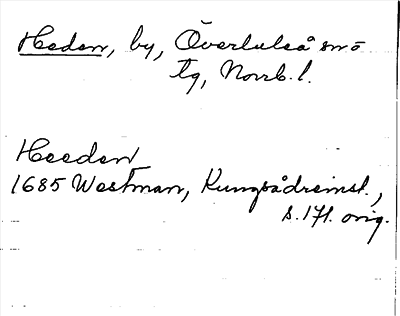 Heden, by, Överluleå sn o
tg, Norrb. l.
Heeden
1685 Westman, Kungsådreinst.,
s. 171. orig.